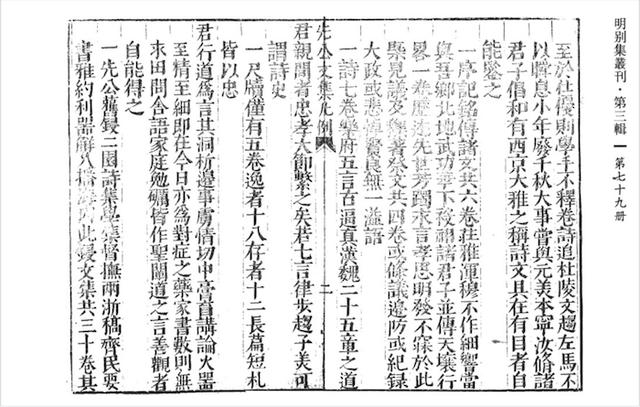 明别集叢刊·第三輯 第七十九册
至於仕優則學手不釋卷詩追杜陵文趨左馬不
以隙息小年廢千秋大事嘗與元美本寧汝脩諸
君子倡和有西京大雅之稱詩文具在有目者自
能鑒之
一序記銘傳諸文共六卷莊雅渾穆不作細響當
與吾鄉北地武功華下諸君子並傳天壤行
畧一卷歷述先世芳躅永言孝思明發不寐於此
槩見議及雜著祭文共四卷或條議邊防或紀錄
大政或悲悼賢良無一溢語
一詩七卷樂府五言古逼真漢魏二十五章之道
先公文集凡例 二
君親聞者忠孝大節繫之矣若七言律步趨子美可
謂詩史
一尺牘僅有五卷逸者十八存者十二長篇短札
皆以忠
君行道爲言其洞析邊事虜情切中膏肓講論火器
至情至細即在今日亦爲對症之藥家書數則無
求田問舍語家庭勉礪皆作聖闢道之言善觀者
自能得之
一先公舊鋟二園詩集學集督撫兩浙稿齊民要
書雅約利器解八播海內此鋟文集共三十卷其